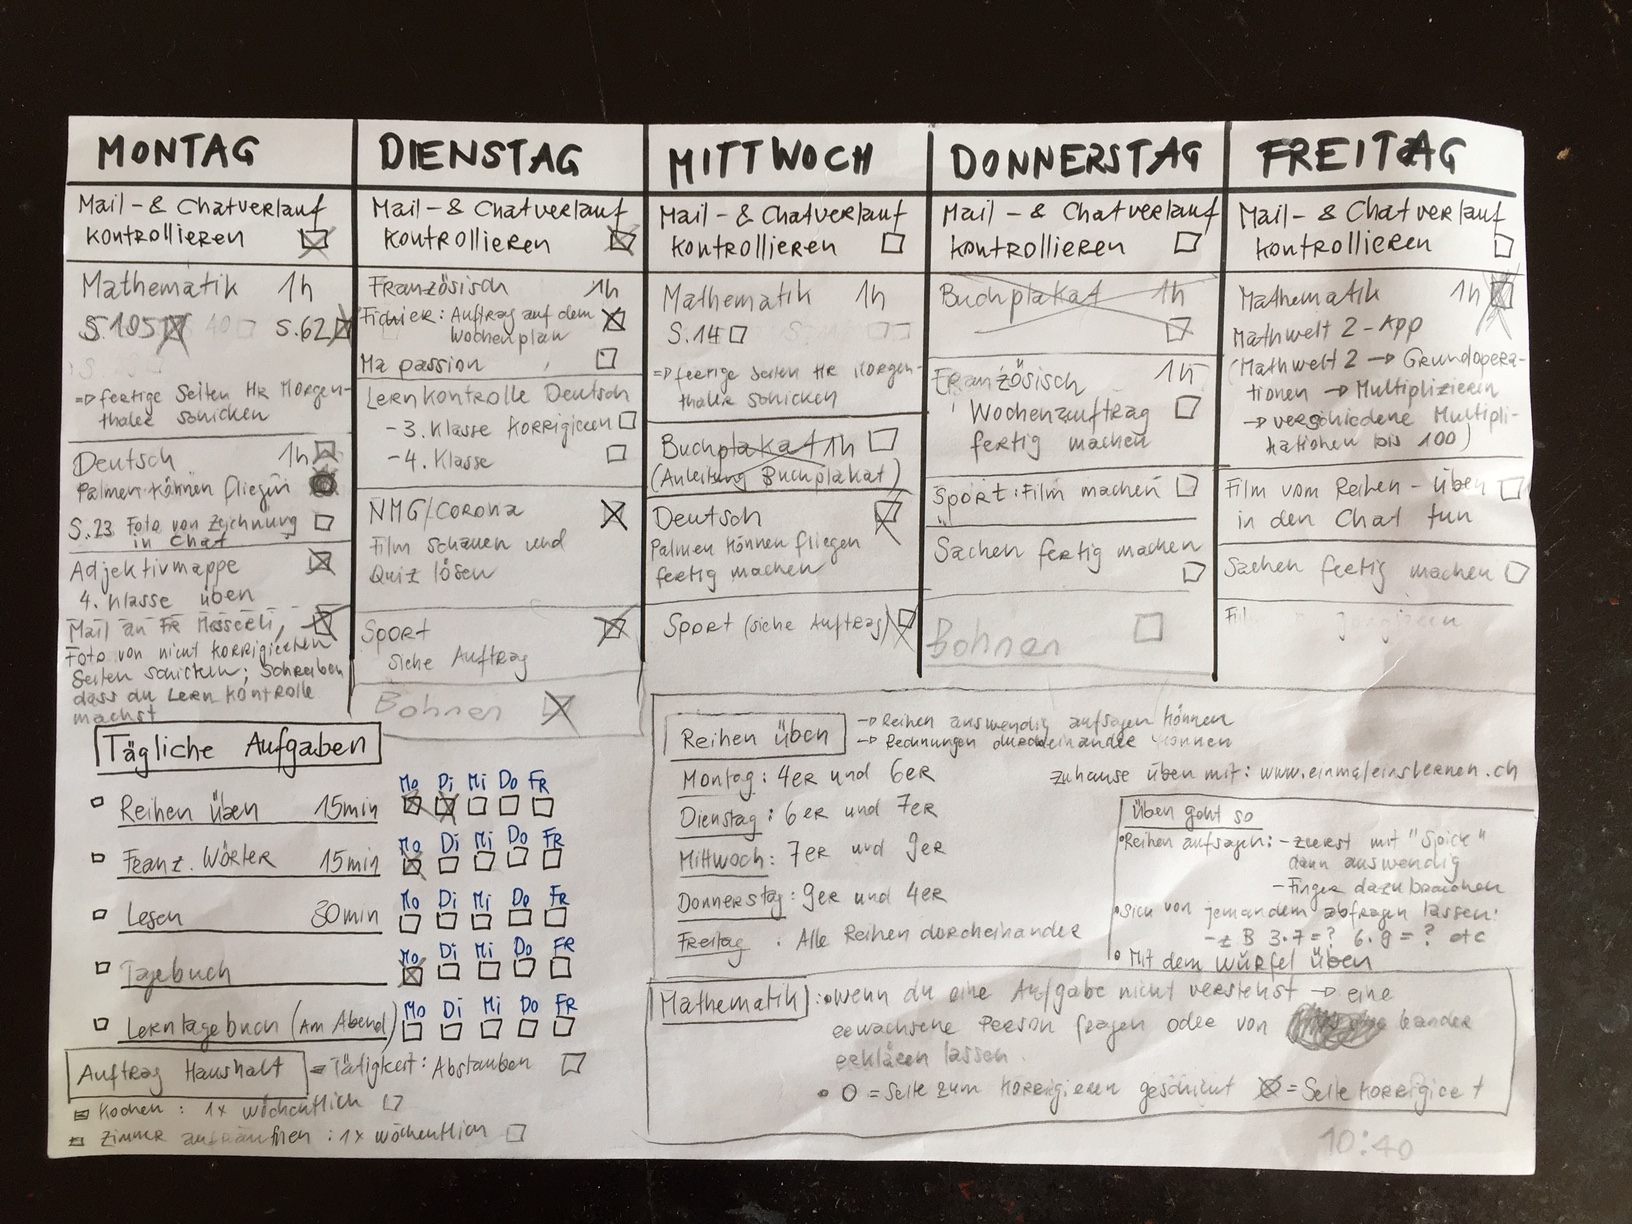 MONTAG
Mail- & Chatverlauf
kontrollieren
Mathematik 1h
S.105 S.62
=> fertige Seiten Hr Morgen-
thaler schicken
Deutsch 1h
Palmen können fliegen
S.23 Foto von Zeichnung
in Chat
Adjektivmappe
4. Klasse üben
Mail an Fr
Foto von nicht korrigierten
Seiten schicken; schreiben
dass du Lernkontrolle
machst
DIENSTAG
Mail- & Chatverlauf
kontrollieren
Französisch 1h
Fichier: Auftrag auf dem
Wochenplan
Ma passion
Lernkontrolle Deutsch
- 3. Klasse korrigieren
- 4. Klasse
NMG/Corona
Film schauen und
Quiz lösen
Sport
siehe Auftrag
Bohnen
MITTWOCH
Mail- & Chatverlauf
kontrollieren
Mathematik 1h
S.14
=> fertige Seiten Hr Morgen-
thaler schicken
Buchplakat 1h
(Anleitung Buchplakat)
Deutsch
Palmen können fliegen
fertig machen
Sport (siehe Auftrag)
DONNERSTAG
Mail- & Chatverlauf
kontrollieren
Buchplakat 1h
Französisch 1h
Wochenauftrag
fertig machen
Sport: Film machen
Sachen fertig machen
Bohnen
FREITAG
Mail- & Chatverlauf
kontrollieren
Mathematik 1h
Mathwelt 2-App
(Mathwelt 2 → Grundopera-
tionen → Multiplizieren
→ verschiedene Multipli-
kationen bis 100)
Film vom Reihen-üben
in den Chat tun
Sachen fertig machen
Tägliche Aufgaben
Reihen üben 15min Mo Di Mi Do Fr
Franz. Wörter 15min Mo Di Mi Do Fr
Lesen 30min Mo Di Mi Do Fr
Tagebuch Mo Di Mi Do Fr
Lerntagebuch (Am Abend) Mo Di Mi Do Fr
Auftrag Haushalt = Tätigkeit: Abstauben
Kochen: 1x wöchentlich
Zimmer aufräumen: 1x wöchentlich
Reihen üben → Reihen auswendig aufsagen können
→ Rechnungen durcheinander können
Montag: 4er und 6er
zuhause üben mit: www.einmaleinslernen.ch
Dienstag: 6er und 7er
Mittwoch: 7er und 9er
Donnerstag: 9er und 4er
Freitag: Alle Reihen durcheinander
Üben geht so
• Reihen aufsagen: - zuerst mit "Spick"
dann auswendig
- Finger dazu brauchen
• Sich von jemandem abfragen lassen:
- z B 3·7=? 6·9=? etc
• Mit dem Würfel üben
Mathematik: • wenn du eine Aufgabe nicht verstehst → eine
erwachsene Person fragen oder von
erklären lassen.
• O = Seite zum korrigieren geschickt = Seite korrigiert
10:40